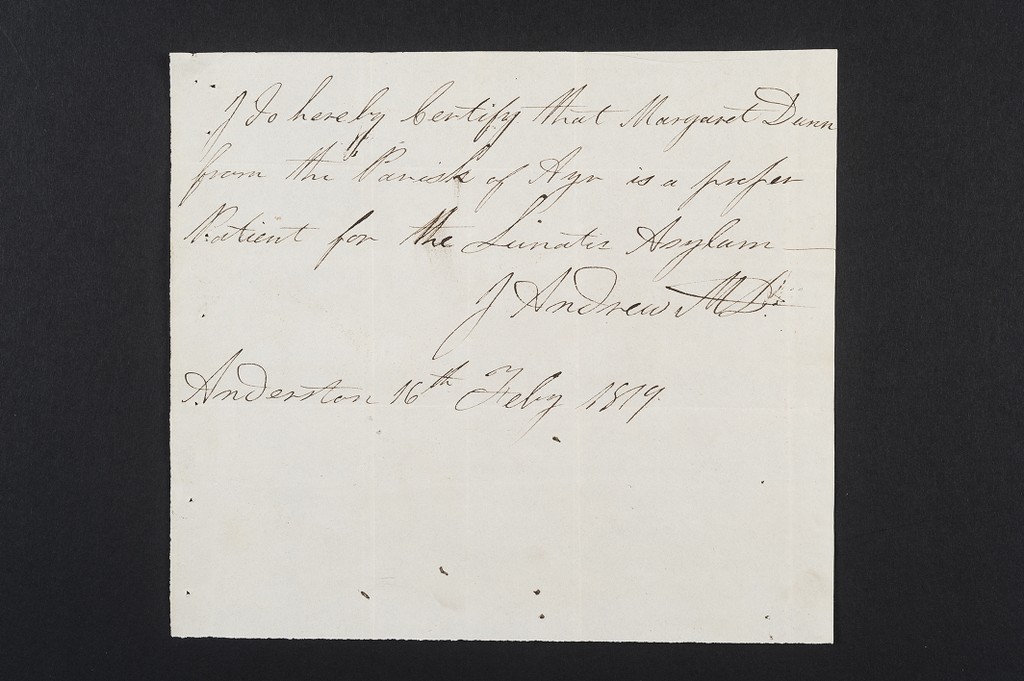 I do hereby Certify that Margaret Dunn
from the Parish of Ayr is a proper
Patient for the Lunatic Asylum —
J Andrew M.D.
Anderston 16th Feby 1819.